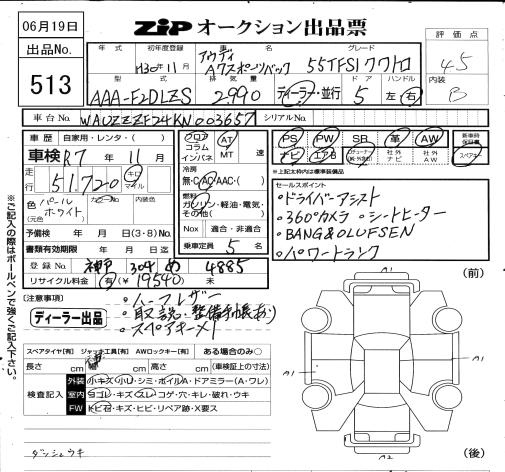 06月19日
ZiP オークション出品票
出品No.
513
年式 初年度登録 車名 グレード
H30年11月 アウディ A7スポーツバック 55TFSIクワトロ
型式 排気量 ドア ハンドル
AAA-F2DLZS 2990 ディーラー・並行 5 左 右
評価点
4.5
内装
B
車台No. WAUZZZF24KN003657 シリアルNo.
車歴 自家用・レンタ( )
車検 R7年 11月
走行 51,720 キロ マイル
色(元色) パールホワイト カラーNo. 内装色
予備検 年 月 日(3・8)No.
書類有効期限 年 月 日迄
登録No. 神戸 304 め 4885
リサイクル料金 有(¥19540) 未
フロア コラム インパネ
AT MT 速
冷房 無・C・AC・AAC・( )
燃料 ガソリン・軽油・電気・その他( )
Nox 適合・非適合
乗車定員 5 名
PS PW SR 革 AW 新車時保証書
ナビ エアB 社外ナビ 社外AW スペアキー
※上記太枠内は標準装備品
セールスポイント
・ドライバーアシスト
・360°カメラ ・シートヒーター
・BANG&OLUFSEN
・パワートランク
(注意事項)
ディーラー出品
・ハーフレザー
・取説・整備手帳あり
・スペアキー×1
スペアタイヤ[有] ジャッキ工具[有] AWロックキー[有] ある場合のみ○
長さ cm 幅 cm 高さ cm (車検証上の寸法)
検査記入
外装 小キズ・小U・シミ・ボイルA・ドアミラー(A・ワレ)
室内 ヨゴレ・キズ・スレ・コゲ・穴・キレ・破れ・ウキ
FW トビ石・キズ・ヒビ・リペア跡・X要ス
ダッシュウキ
(前)
A1
A1
A1
A2
(後)
※ご記入の際はボールペンで強くご記入下さい。